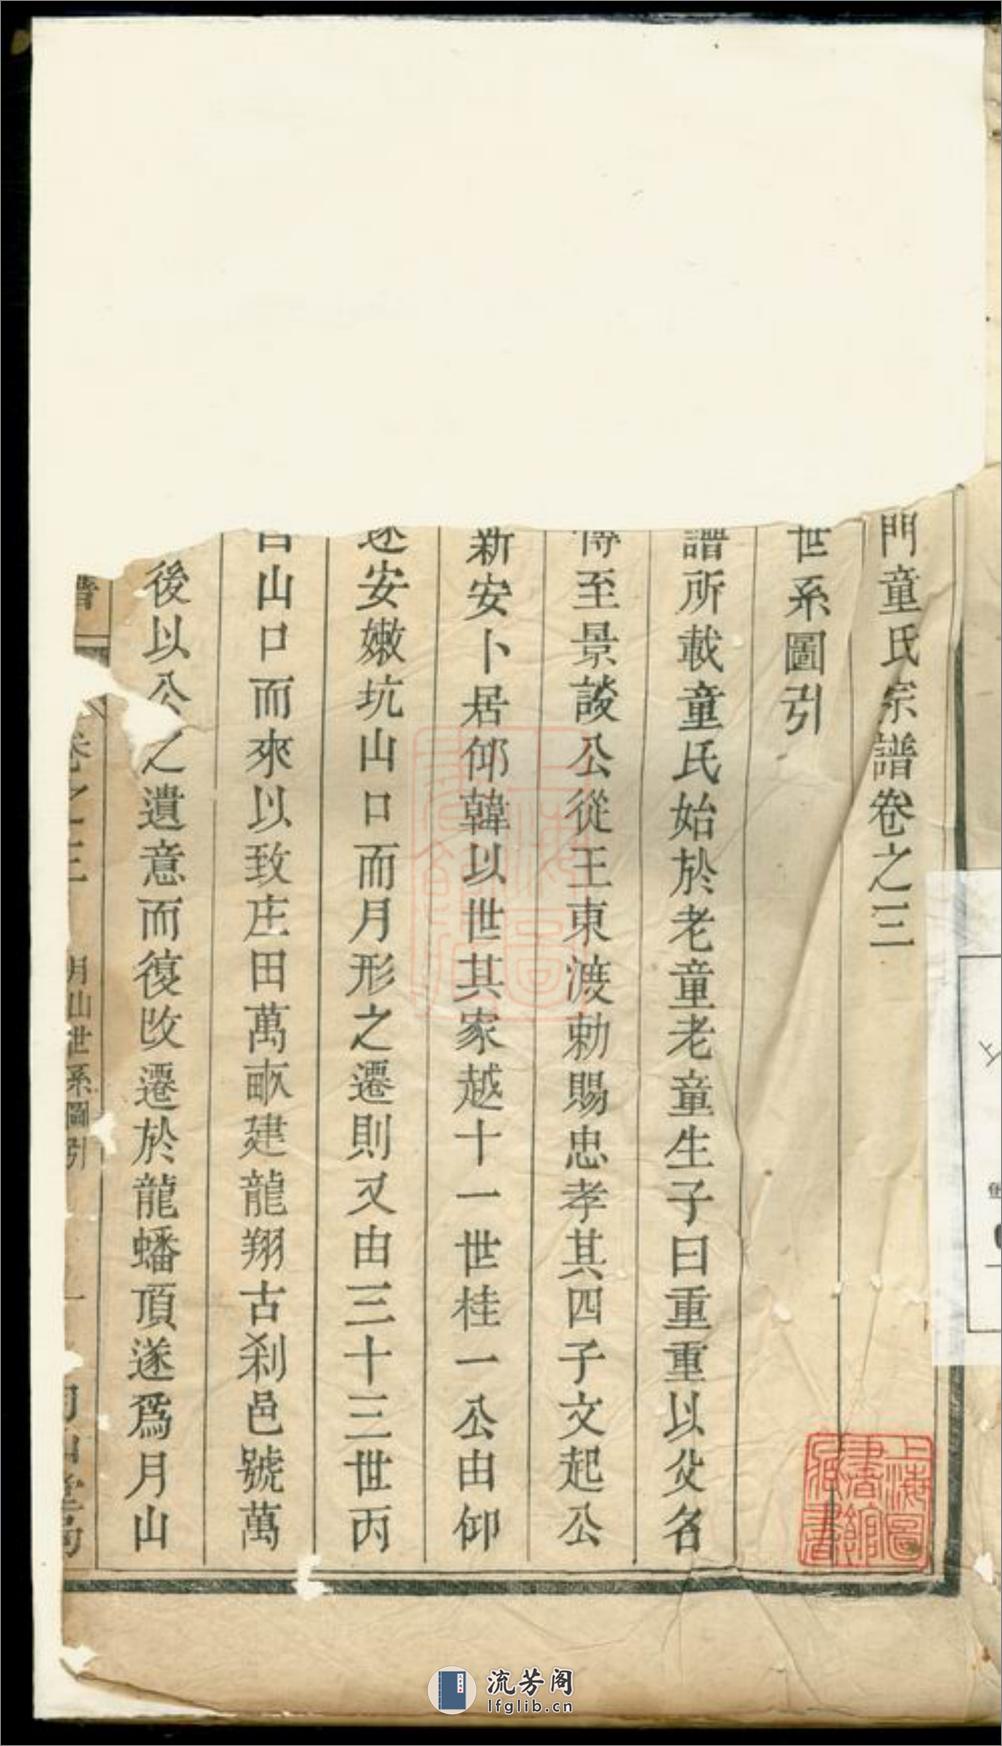 門童氏宗譜卷之三
世系圖引
譜所載童氏始於老童老童生子曰重重以父名
傳至景談公從王東渡勅賜忠孝其四子文起公
新安卜居仰韓以世其家越十一世桂一公由仰
迯安嫩坑山口而月形之遷則又由三十三世丙
山口而來以致庄田萬畝建龍翔古刹邑號萬
後以公之遺意而復改遷於龍蟠頂遂爲月山
譜
卷之三
月山世系圖引
一
上海圖書館藏書
流芳阁
lfglib.cn